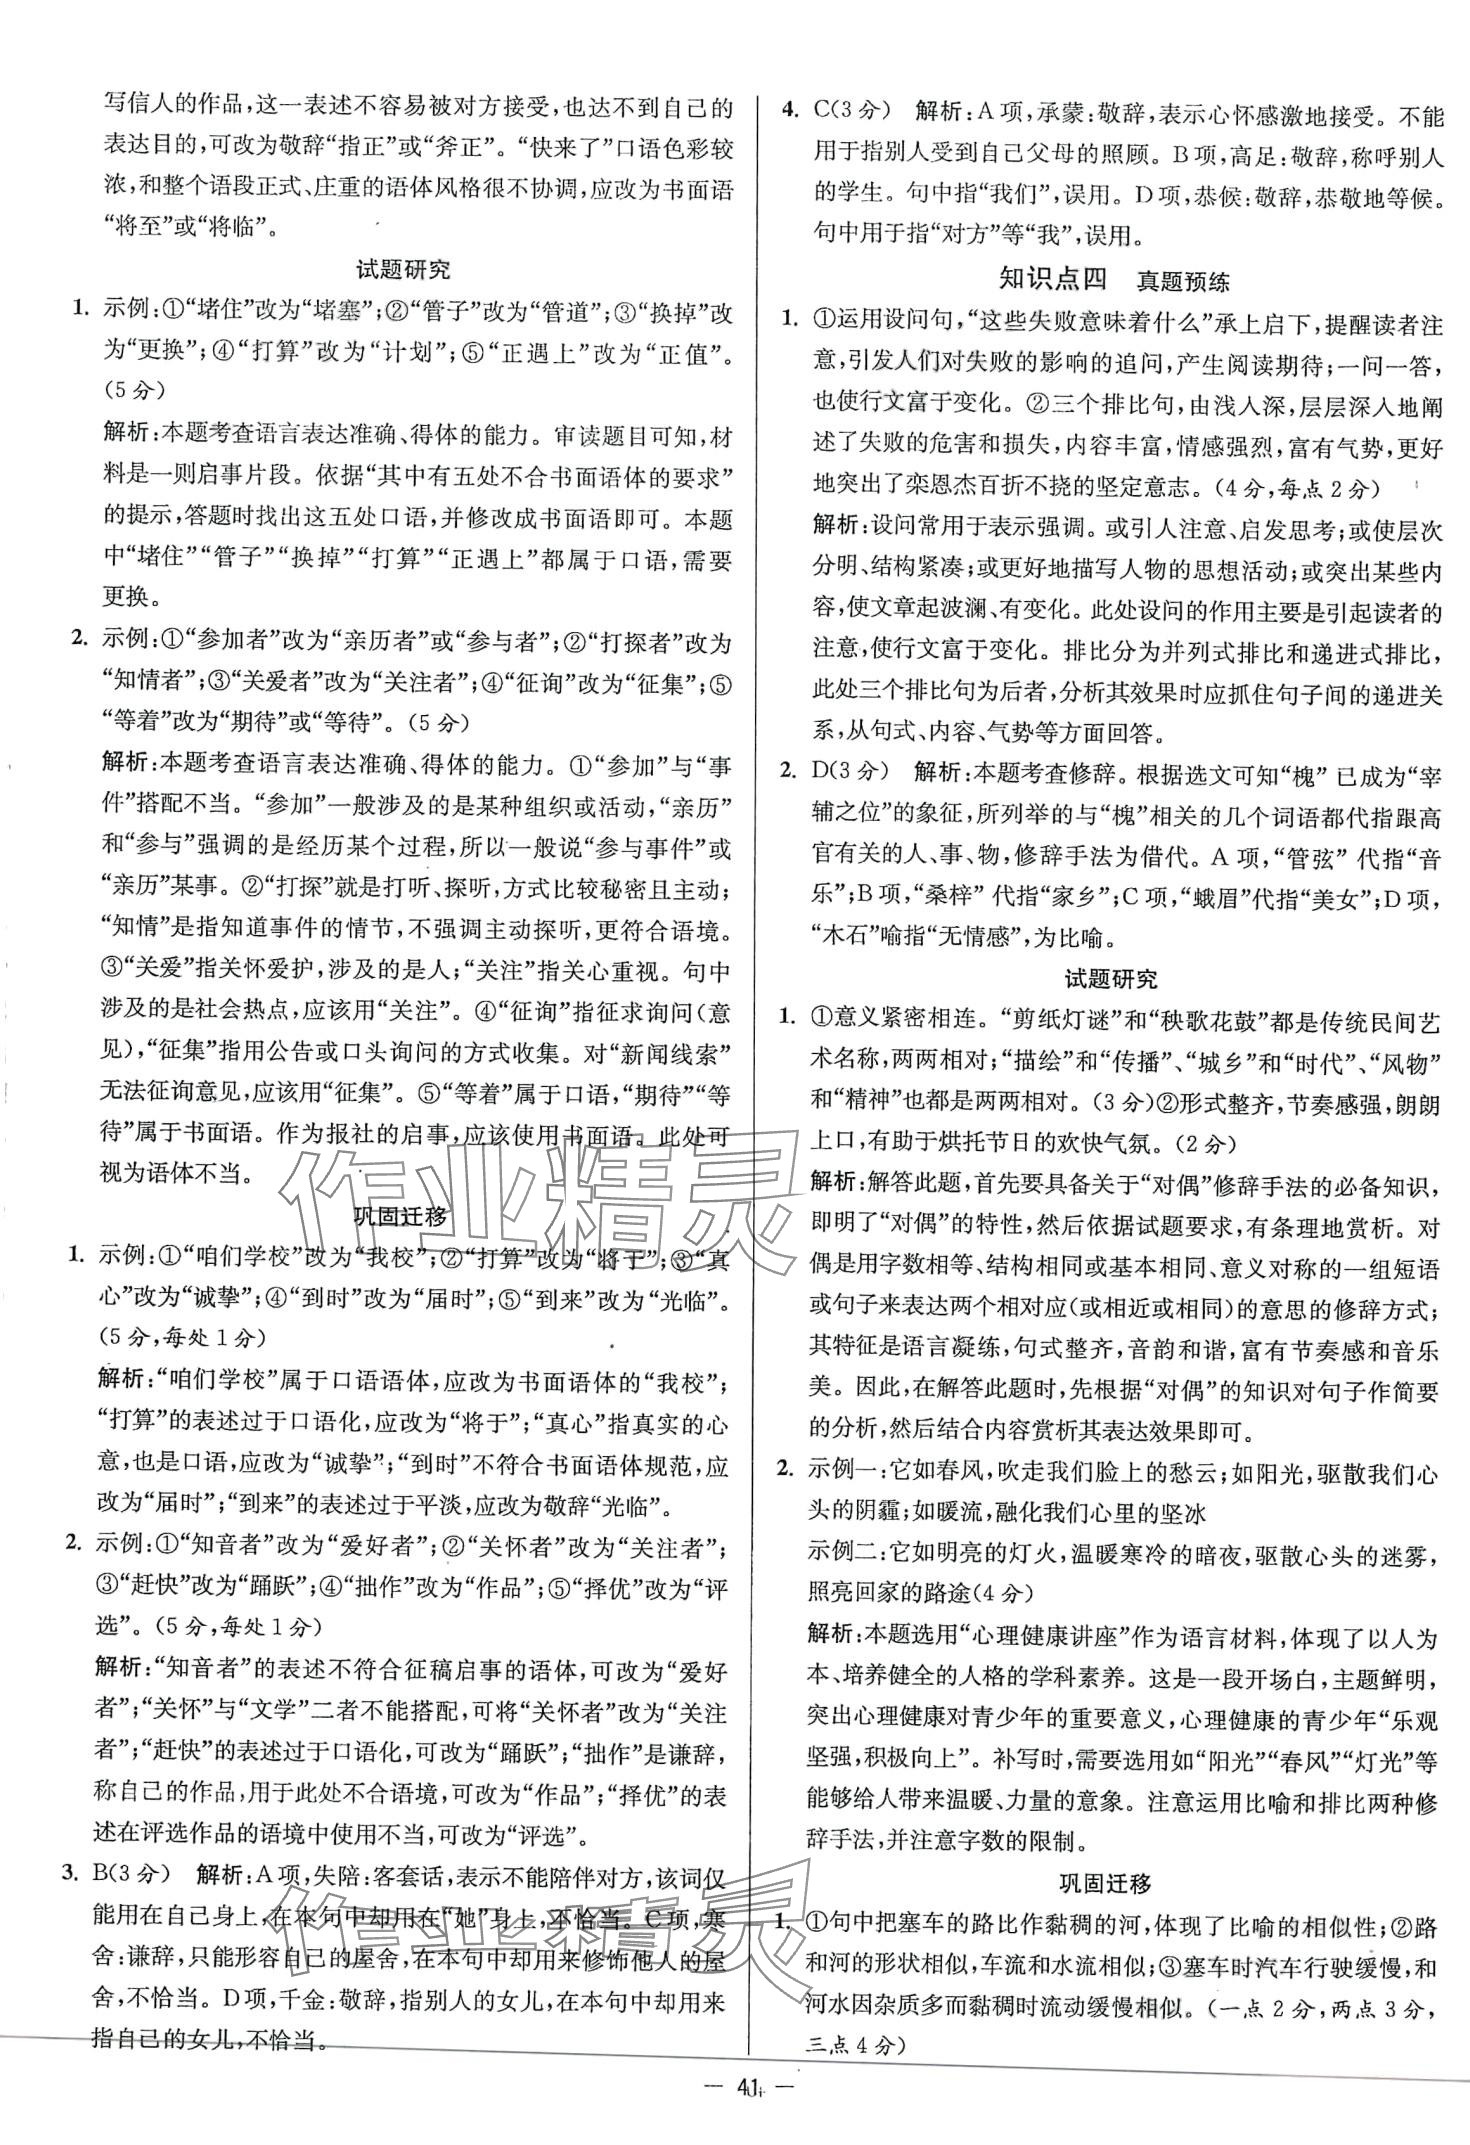 写信人的作品,这一表述不容易被对方接受,也达不到自己的
表达目的,可改为敬辞“指正”或“斧正”。“快来了”口语色彩较
浓,和整个语段正式、庄重的语体风格很不协调,应改为书面语
“将至”或“将临”。
试题研究
1. 示例:①“堵住”改为“堵塞”;②“管子”改为“管道”;③“换掉”改
为“更换”;④“打算”改为“计划”;⑤“正遇上”改为“正值”。
(5分)
解析:本题考查语言表达准确、得体的能力。审读题目可知,材
料是一则启事片段。依据“其中有五处不合书面语体的要求”
的提示,答题时找出这五处口语,并修改成书面语即可。本题
中“堵住”“管子”“换掉”“打算”“正遇上”都属于口语,需要
更换。
2. 示例:①“参加者”改为“亲历者”或“参与者”;②“打探者”改为
“知情者”;③“关爱者”改为“关注者”;④“征询”改为“征集”;⑤
“等着”改为“期待”或“等待”。(5分)
解析:本题考查语言表达准确、得体的能力。①“参加”与“事
件”搭配不当。“参加”一般涉及的是某种组织或活动,“亲历”
和“参与”强调的是经历某个过程,所以一般说“参与事件”或
“亲历”某事。②“打探”就是打听、探听,方式比较秘密且主动;
“知情”是指知道事件的情节,不强调主动探听,更符合语境。
③“关爱”指关怀爱护,涉及的是人;“关注”指关心重视。句中
涉及的是社会热点,应该用“关注”。④“征询”指征求询问(意
见),“征集”指用公告或口头询问的方式收集。对“新闻线索”
无法征询意见,应该用“征集”。⑤“等着”属于口语,“期待”“等
待”属于书面语。作为报社的启事,应该使用书面语。此处可
视为语体不当。
巩固迁移
1. 示例:①“咱们学校”改为“我校”;②“打算”改为“将于”;③“真
心”改为“诚挚”;④“到时”改为“届时”;⑤“到来”改为“光临”。
(5分,每处1分)
解析:“咱们学校”属于口语语体,应改为书面语体的“我校”;
“打算”的表述过于口语化,应改为“将于”;“真心”指真实的心
意,也是口语,应改为“诚挚”;“到时”不符合书面语体规范,应
改为“届时”;“到来”的表述过于平淡,应改为敬辞“光临”。
2. 示例:①“知音者”改为“爱好者”;②“关怀者”改为“关注者”;
③“赶快”改为“踊跃”;④“拙作”改为“作品”;⑤“择优”改为“评
选”。(5分,每处1分)
解析:“知音者”的表述不符合征稿启事的语体,可改为“爱好
者”;“关怀”与“文学”二者不能搭配,可将“关怀者”改为“关注
者”;“赶快”的表述过于口语化,可改为“踊跃”;“拙作”是谦辞,
称自己的作品,用于此处不合语境,可改为“作品”;“择优”的表
述在评选作品的语境中使用不当,可改为“评选”。
3. B(3分) 解析:A项,失陪:客套话,表示不能陪伴对方,该词仅
能用在自己身上,在本句中却用在“她”身上,不恰当。C项,寒
舍:谦辞,只能形容自己的屋舍,在本句中却用来修饰他人的屋
舍,不恰当。D项,千金:敬辞,指别人的女儿,在本句中却用来
指自己的女儿,不恰当。
4. C(3分) 解析:A项,承蒙:敬辞,表示心怀感激地接受。不能
用于指别人受到自己父母的照顾。B项,高足:敬辞,称呼别人
的学生。句中指“我们”,误用。D项,恭候:敬辞,恭敬地等候。
句中用于指“对方”等“我”,误用。
知识点四 真题预练
1. ①运用设问句,“这些失败意味着什么”承上启下,提醒读者注
意,引发人们对失败的影响的追问,产生阅读期待;一问一答,
也使行文富于变化。②三个排比句,由浅入深,层层深入地阐
述了失败的危害和损失,内容丰富,情感强烈,富有气势,更好
地突出了栾恩杰百折不挠的坚定意志。(4分,每点2分)
解析:设问常用于表示强调。或引人注意、启发思考;或使层次
分明、结构紧凑;或更好地描写人物的思想活动;或突出某些内
容,使文章起波澜、有变化。此处设问的作用主要是引起读者的
注意,使行文富于变化。排比分为并列式排比和递进式排比,
此处三个排比句为后者,分析其效果时应抓住句子间的递进关
系,从句式、内容、气势等方面回答。
2. D(3分) 解析:本题考查修辞。根据选文可知“槐”已成为“宰
辅之位”的象征,所列举的与“槐”相关的几个词语都代指跟高
官有关的人、事、物,修辞手法为借代。A项,“管弦”代指“音
乐”;B项,“桑梓”代指“家乡”;C项,“蛾眉”代指“美女”;D项,
“木石”喻指“无情感”,为比喻。
试题研究
1. ①意义紧密相连。“剪纸灯谜”和“秧歌花鼓”都是传统民间艺
术名称,两两相对;“描绘”和“传播”、“城乡”和“时代”、“风物”
和“精神”也都是两两相对。(3分)②形式整齐,节奏感强,朗朗
上口,有助于烘托节日的欢快气氛。(2分)
解析:解答此题,首先要具备关于“对偶”修辞手法的必备知识,
即明了“对偶”的特性,然后依据试题要求,有条理地赏析。对
偶是用字数相等、结构相同或基本相同、意义对称的一组短语
或句子来表达两个相对应(或相近或相同)的意思的修辞方式;
其特征是语言凝练,句式整齐,音韵和谐,富有节奏感和音乐
美。因此,在解答此题时,先根据“对偶”的知识对句子作简要
的分析,然后结合内容赏析其表达效果即可。
2. 示例一:它如春风,吹走我们脸上的愁云;如阳光,驱散我们心
头的阴霾;如暖流,融化我们心里的坚冰
示例二:它如明亮的灯火,温暖寒冷的暗夜,驱散心头的迷雾,
照亮回家的路途(4分)
解析:本题选用“心理健康讲座”作为语言材料,体现了以人为
本、培养健全的人格的学科素养。这是一段开场白,主题鲜明,
突出心理健康对青少年的重要意义,心理健康的青少年“乐观
坚强,积极向上”。补写时,需要选用如“阳光”“春风”“灯光”等
能够给人带来温暖、力量的意象。注意运用比喻和排比两种修
辞手法,并注意字数的限制。
巩固迁移
1. ①句中把塞车的路比作黏稠的河,体现了比喻的相似性;②路
和河的形状相似,车流和水流相似;③塞车时汽车行驶缓慢,和
河水因杂质多而黏稠时流动缓慢相似。(一点2分,两点3分,
三点4分)
— 41 —
作业精灵
作业精灵